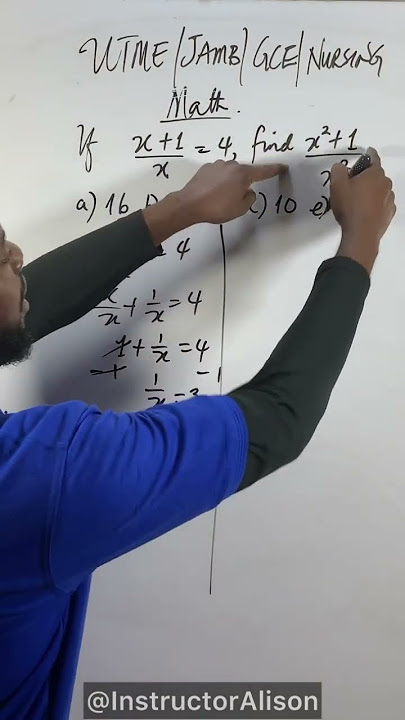 UTME/JAMB/GCE/NURSING
Math.
If x+1/x = 4, find x²+1/x²
a) 16 c) 10 e)
= 4
x/x + 1/x = 4
1 + 1/x = 4
-1 -1
1/x = 3
@InstructorAlison